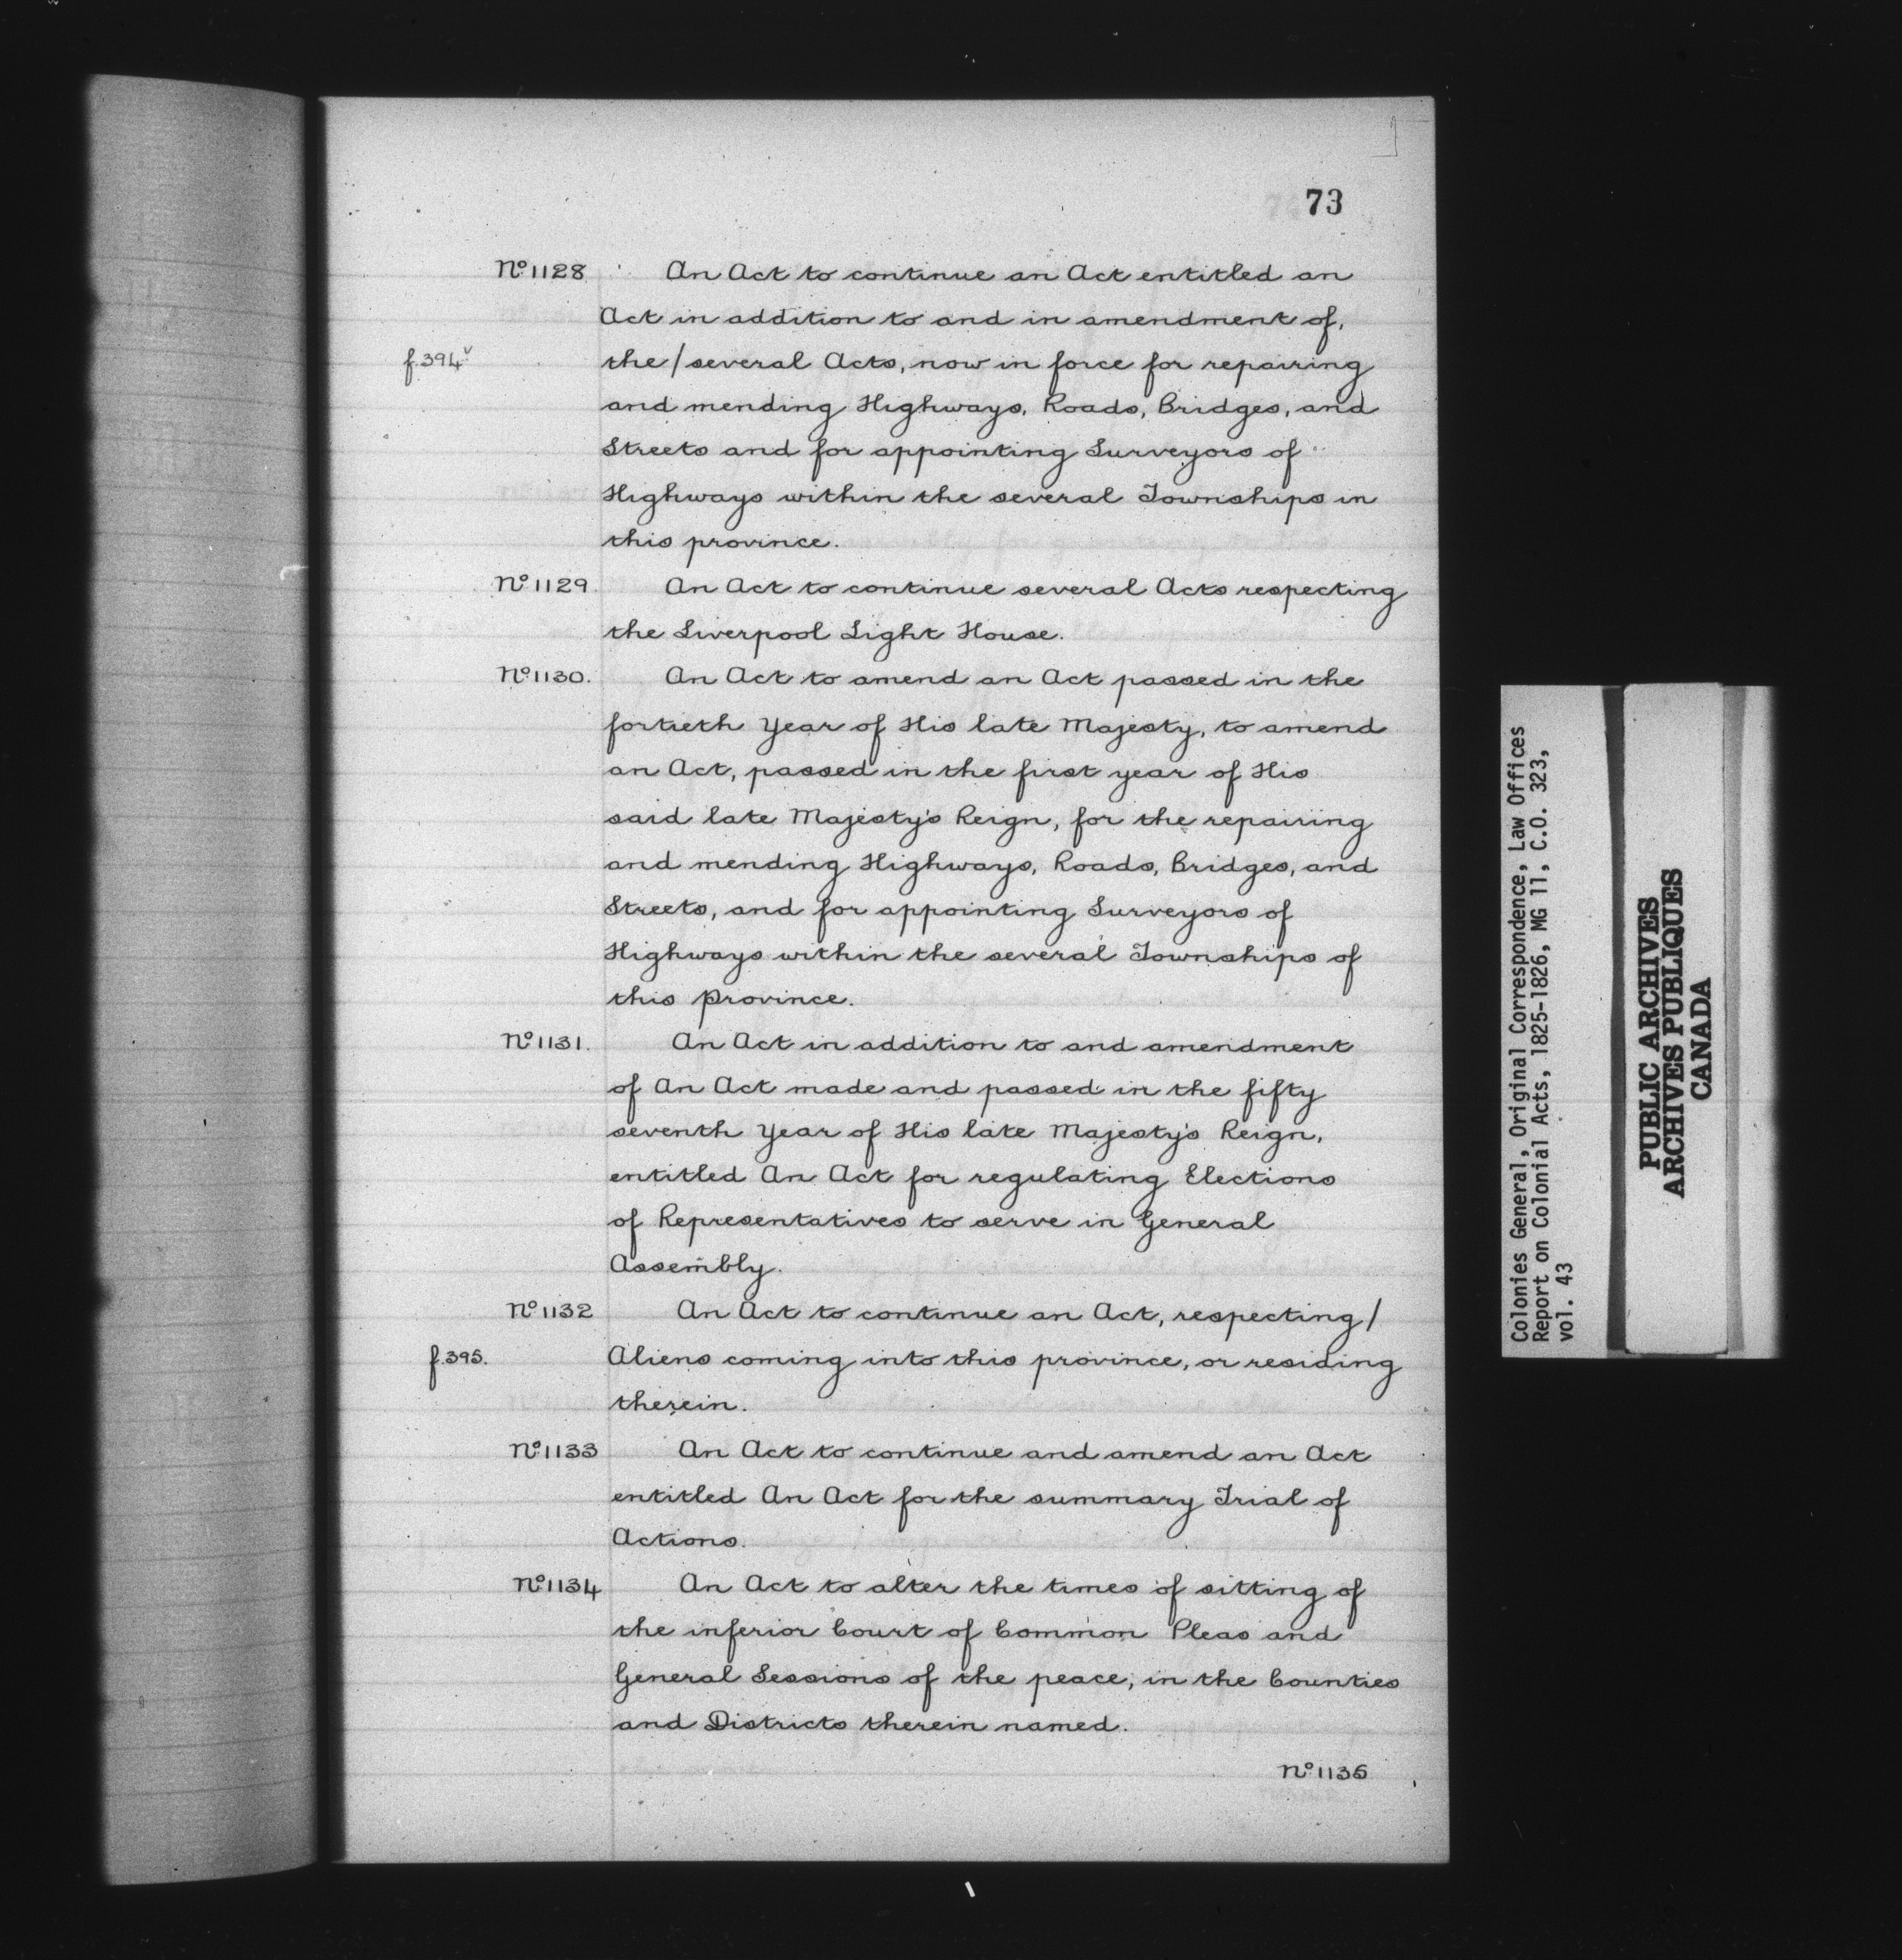 73
Nº 1128 An Act to continue an Act entitled an
Act in addition to and in amendment of,
f.394v the/several Acts, now in force for repairing
and mending Highways, Roads, Bridges, and
Streets and for appointing Surveyors of
Highways within the several Townships in
this province.
Nº 1129. An Act to continue several Acts respecting
the Liverpool Light House.
Nº 1130. An Act to amend an Act passed in the
fortieth Year of His late Majesty, to amend
an Act, passed in the first year of His
said late Majesty's Reign, for the repairing
and mending Highways, Roads, Bridges, and
Streets, and for appointing Surveyors of
Highways within the several Townships of
this Province.
Nº 1131. An Act in addition to and amendment
of An Act made and passed in the fifty
seventh Year of His late Majesty's Reign,
entitled An Act for regulating Elections
of Representatives to serve in General
Assembly.
Nº 1132 An Act to continue an Act, respecting/
f.395. Aliens coming into this province, or residing
therein.
Nº 1133 An Act to continue and amend an Act
entitled An Act for the summary Trial of
Actions.
Nº 1134 An Act to alter the times of sitting of
the inferior Court of Common Pleas and
General Sessions of the peace, in the Counties
and Districts therein named.
Nº 1135
Colonies General, Original Correspondence, Law Offices
Report on Colonial Acts, 1825-1826, MG 11, C.O. 323,
vol. 43
PUBLIC ARCHIVES
ARCHIVES PUBLIQUES
CANADA